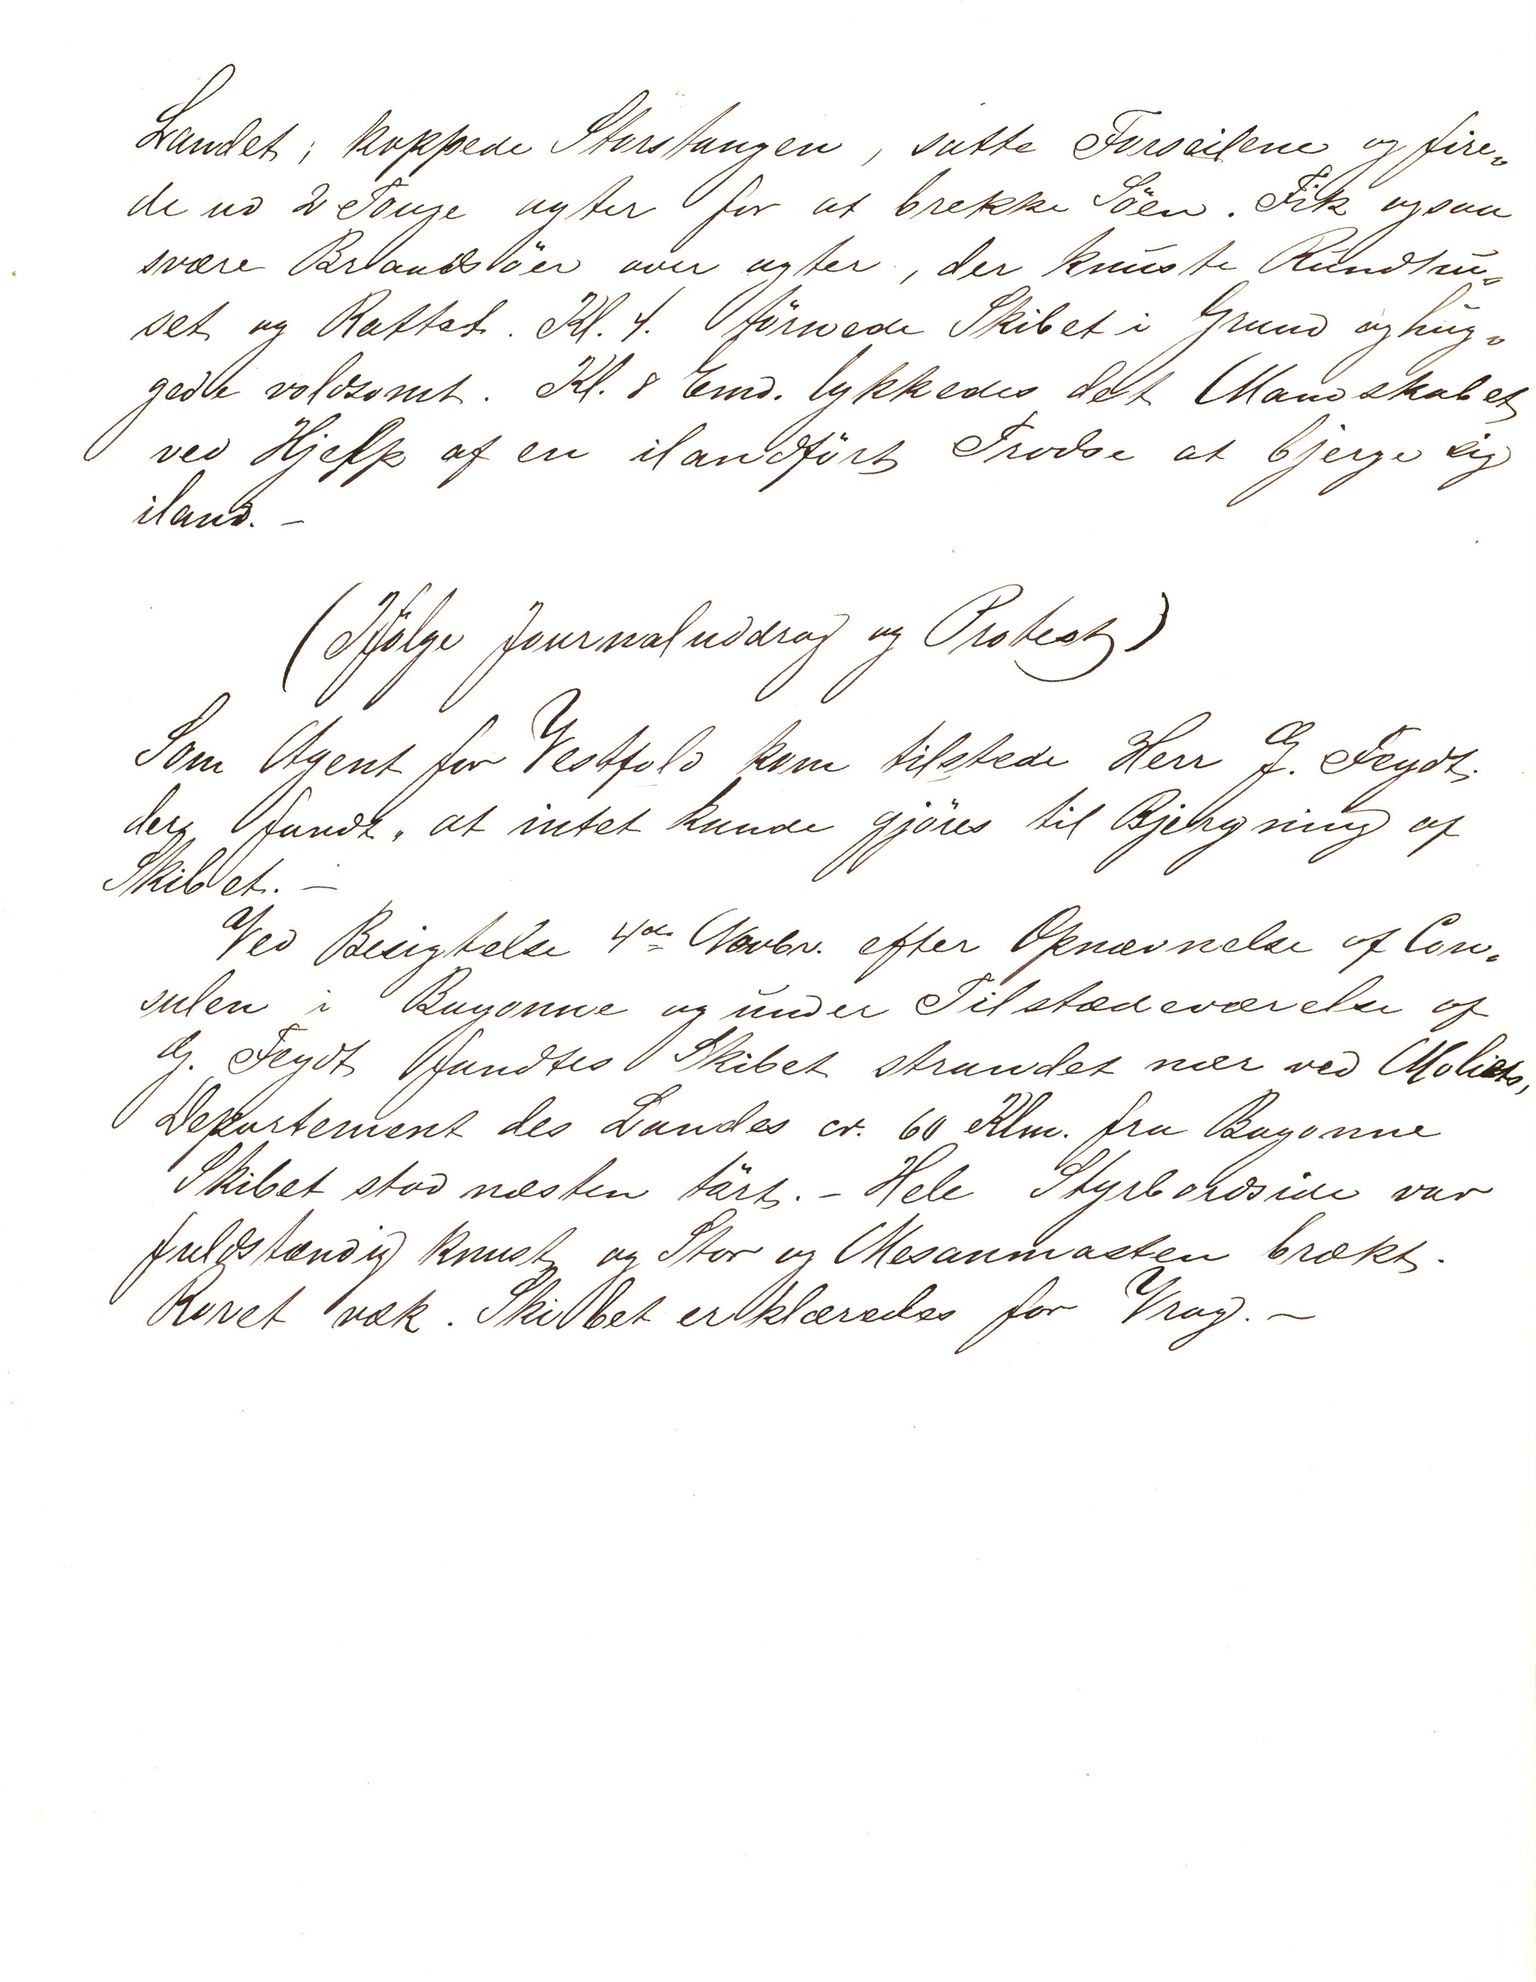 Landet; kappede Storstangen, satte Forseilene og fire-
de ud 2 Touge agter for at brekke Söen. Fik ogsaa
svære Braadsöer over agter, der knuste Rundhu-
set og Rattet. Kl. 4. törnede Skibet i Grund og hug-
gede voldsomt. Kl. 8 Emd. lykkedes det Mandskabet
ved Hjelp af en ilandfört Trodse at bjerge sig
iland. –
(Ifölge Journaluddrag og Protest)
Som Agent for Vestfold kom tilstede Herr G. Feydt.
der fandt, at intet kunde gjöres til Bjergning af
Skibet. –
Ved Besigtelse 4de Novbr. efter Opnævnelse af Con-
sulen i Bayonne og under Tilstædeværelse af
G. Feydt fandtes Skibet strandet nær ved Moliets,
Departement des Landes cr. 60 Klm. fra Bayonne
Skibet stod næsten tört. – Hele Styrbordside var
fuldstændig knust og Stor og Mesanmasten brækt.
Roret væk. Skibet erklæredes for Vrag. –